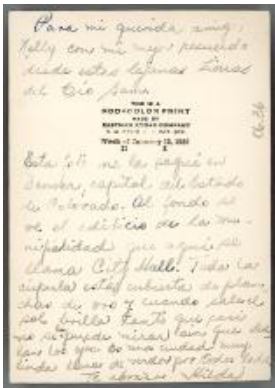 Para mi querida amiga
Nelly con mi mejor recuerdo
desde estas lejanas tierras
del Tio Sam.
THIS IS A
KODACOLOR PRINT
MADE BY
EASTMAN KODAK COMPANY
Week of January
Esta foto me la saqué en
Denver, capital del Estado
de Colorado. Al fondo se
ve el edificio de la mu-
nicipalidad que aquí se
llama City Hall. Toda la
cúpula está cubierta de plan-
chas de oro y cuando sale el
sol brilla tanto que casi
no se puede mirar sin que da-
ñan los ojos. Es una ciudad muy
linda llena de verdor por todos lados
Te abraza Hilda